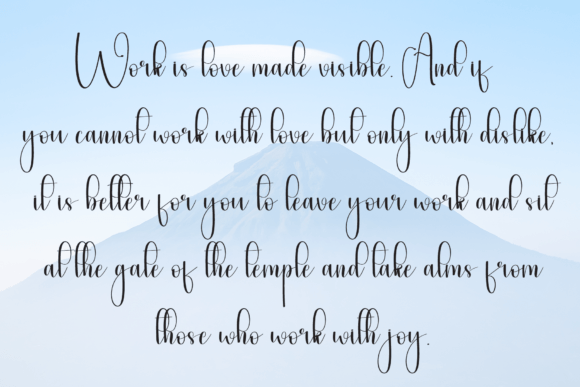 Work is love made visible. And if
you cannot work with love but only with dislike,
it is better for you to leave your work and sit
at the gate of the temple and take alms from
those who work with joy.